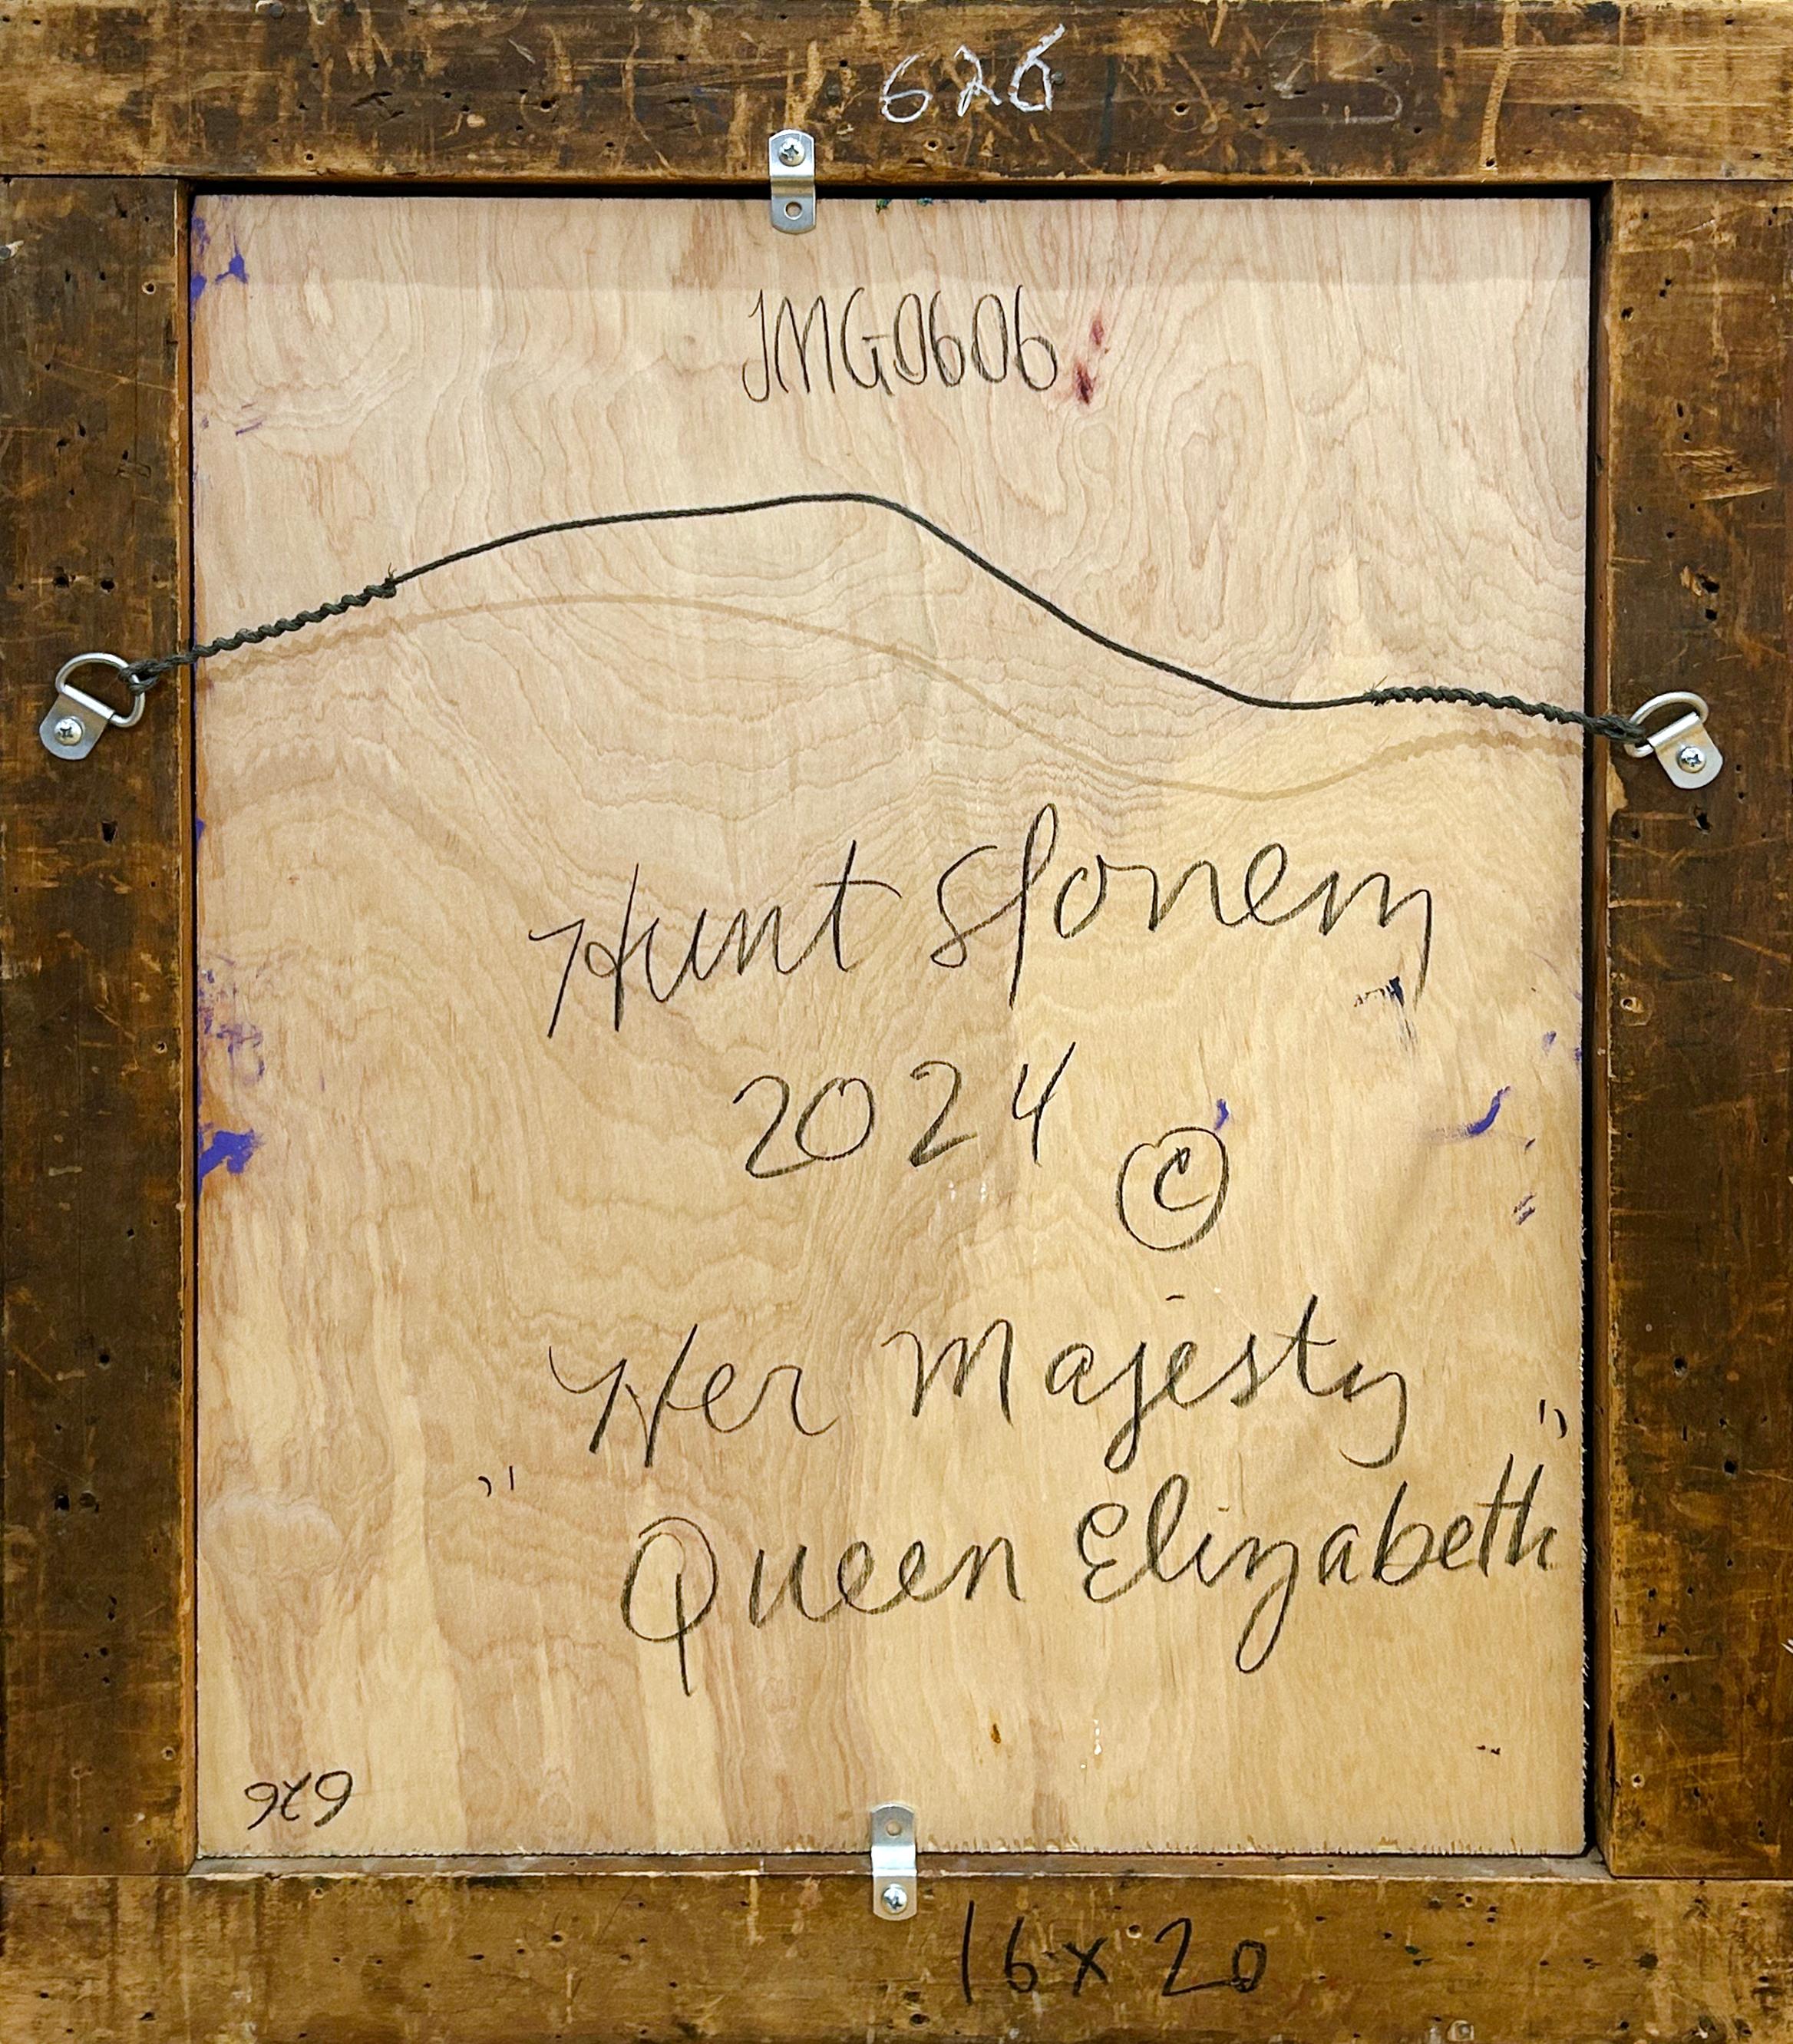 626
JMG0606
Hunt Slonem
2024 ©
"Her Majesty
Queen Elizabeth"
626
16x20